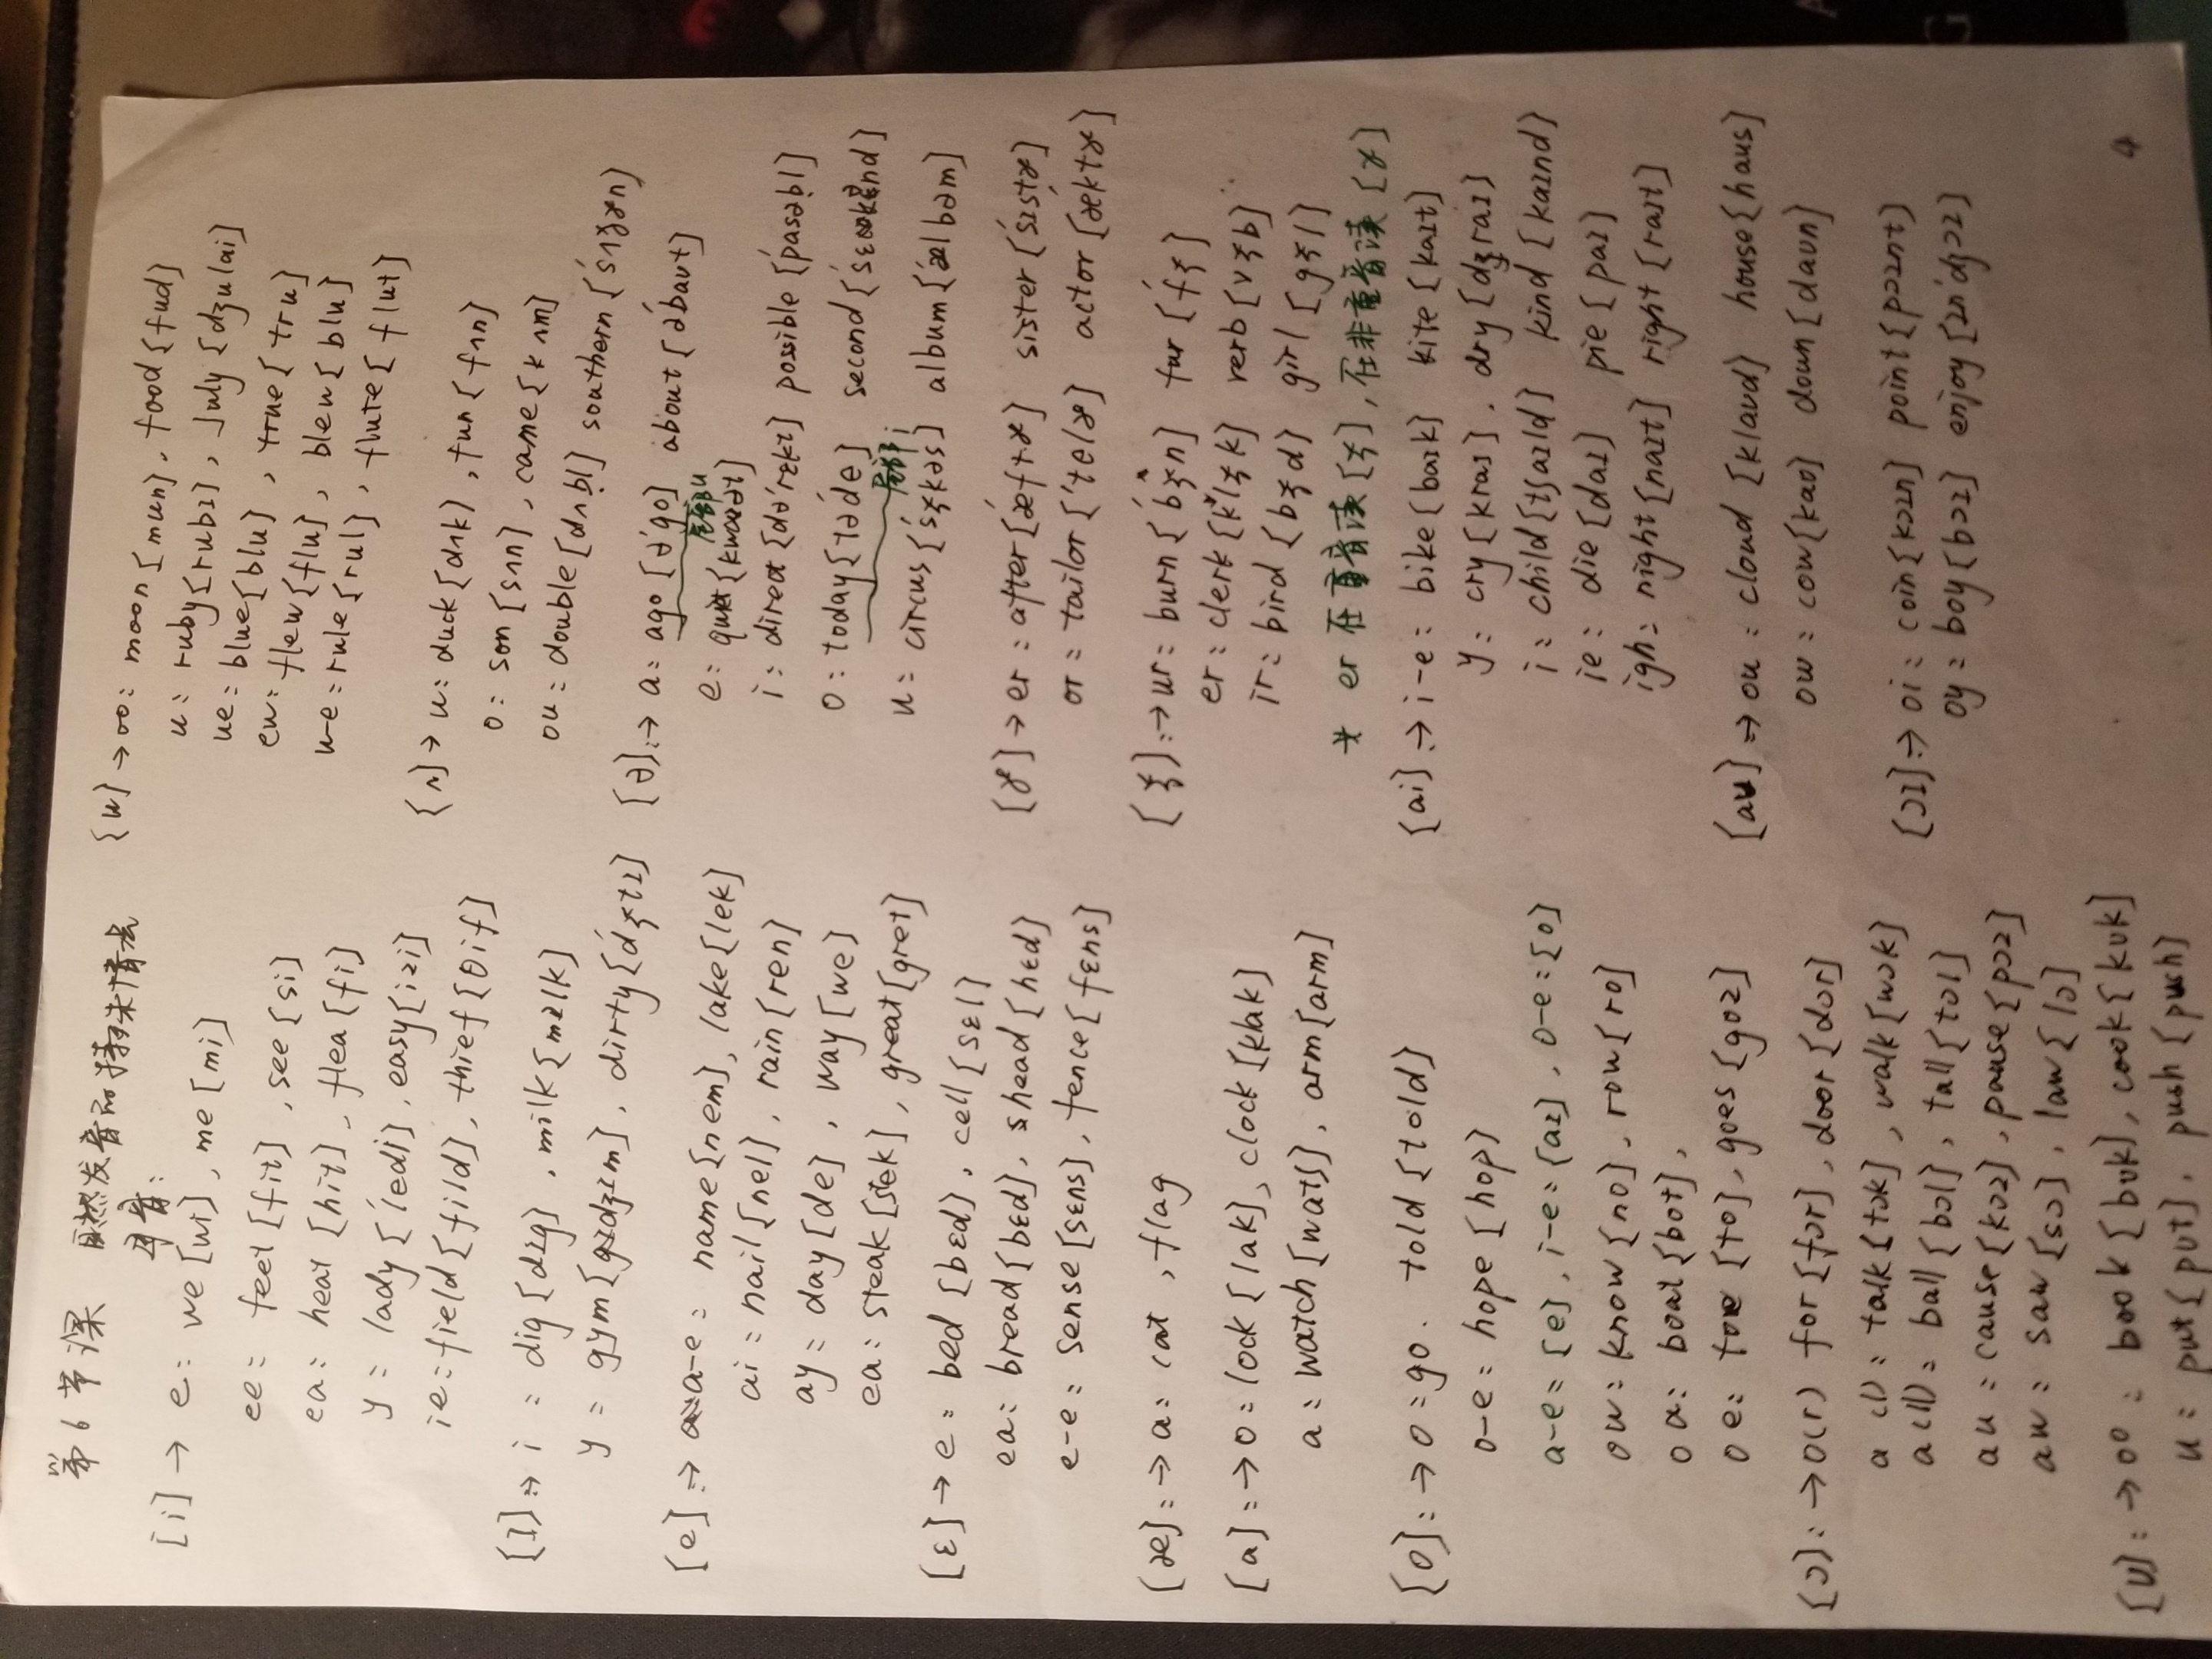 第6节课 自然发音的特殊情况
母音:
[i] → e: we [wi], me [mi]
ee: feet [fit], see [si]
ea: heat [hit], flea [fi]
y: lady ['ledi], easy [izi]
ie: field [fild], thief [θif]
[ɪ]: → i: dig [dɪg], milk [mɪlk]
y: gym [dʒɪm], dirty ['dɝtɪ]
[e]: → a-e: name [nem], lake [lek]
ai: nail [nel], rain [ren]
ay: day [de], way [we]
ea: steak [stek], great [gret]
[ɛ] → e: bed [bɛd], cell [sɛl]
ea: bread [bɛd], head [hɛd]
e-e: sense [sɛns], fence [fɛns]
[æ]: → a: cat, flag
[a]: → o: lock [lak], clock [klak]
a: watch [watʃ], arm [arm]
[o]: → o: go. told [told]
o-e: hope [hop]
a-e: [e], i-e: [aɪ], o-e: [o]
ow: know [no], row [ro]
oa: boat [bot],
oe: toe [to], goes [goz]
[ɔ]: → o(r) for [fɔr], door [dɔr]
a(l): talk [tɔk], walk [wɔk]
a(ll): ball [bɔl], tall [tɔl]
au: cause [kɔz], pause [pɔz]
aw: saw [sɔ], law [lɔ]
[ʊ]: → oo: book [bʊk], cook [kʊk]
u: put [pʊt], push [push]
[u] → oo: moon [mun], food [fud]
u: ruby [rubɪ], July [dʒulai]
ue: blue [blu], true [tru]
ew: flew [flu], blew [blu]
u-e: rule [rul], flute [flut]
[ʌ] → u: duck [dʌk], fun [fʌn]
o: son [sʌn], came [kʌm]
ou: double [dʌbl̩] southern ['sʌðɚn]
[ə]: → a: ago [ə'go] about [ə'baʊt]
尾部u
e: quiet [kwaɪət]
i: direct [də'rɛkt] possible ['pasəbl̩]
o: today [tə'de] second ['sɛkənd]
尾部i
u: circus ['sɝkəs] album ['ælbəm]
[ɚ] → er: after ['æftɚ] sister ['sɪstɚ]
or: tailor ['telɚ] actor ['æktɚ]
[ɝ]: → ur: burn ['bɝn] fur ['fɝ]
er: clerk [klɝk] verb [vɝb]
ir: bird [bɝd] girl [gɝl]
* er 在重音读 [ɝ], 在非重音读 [ɚ]
[ai]: → i-e: bike [baɪk] kite [kaɪt]
y: cry [kraɪ]. dry [dʒraɪ]
i: child [tʃaɪld] kind [kaɪnd]
ie: die [daɪ] pie [paɪ]
igh: night [naɪt] right [raɪt]
[aʊ]: → ou: cloud [klaʊd] house [haus]
ow: cow [kaʊ] down [daʊn]
[ɔɪ]: → oi: coin [kɔɪn] point [pɔɪnt]
oy: boy [bɔɪ] enjoy [ɪn'dʒɔɪ]
4